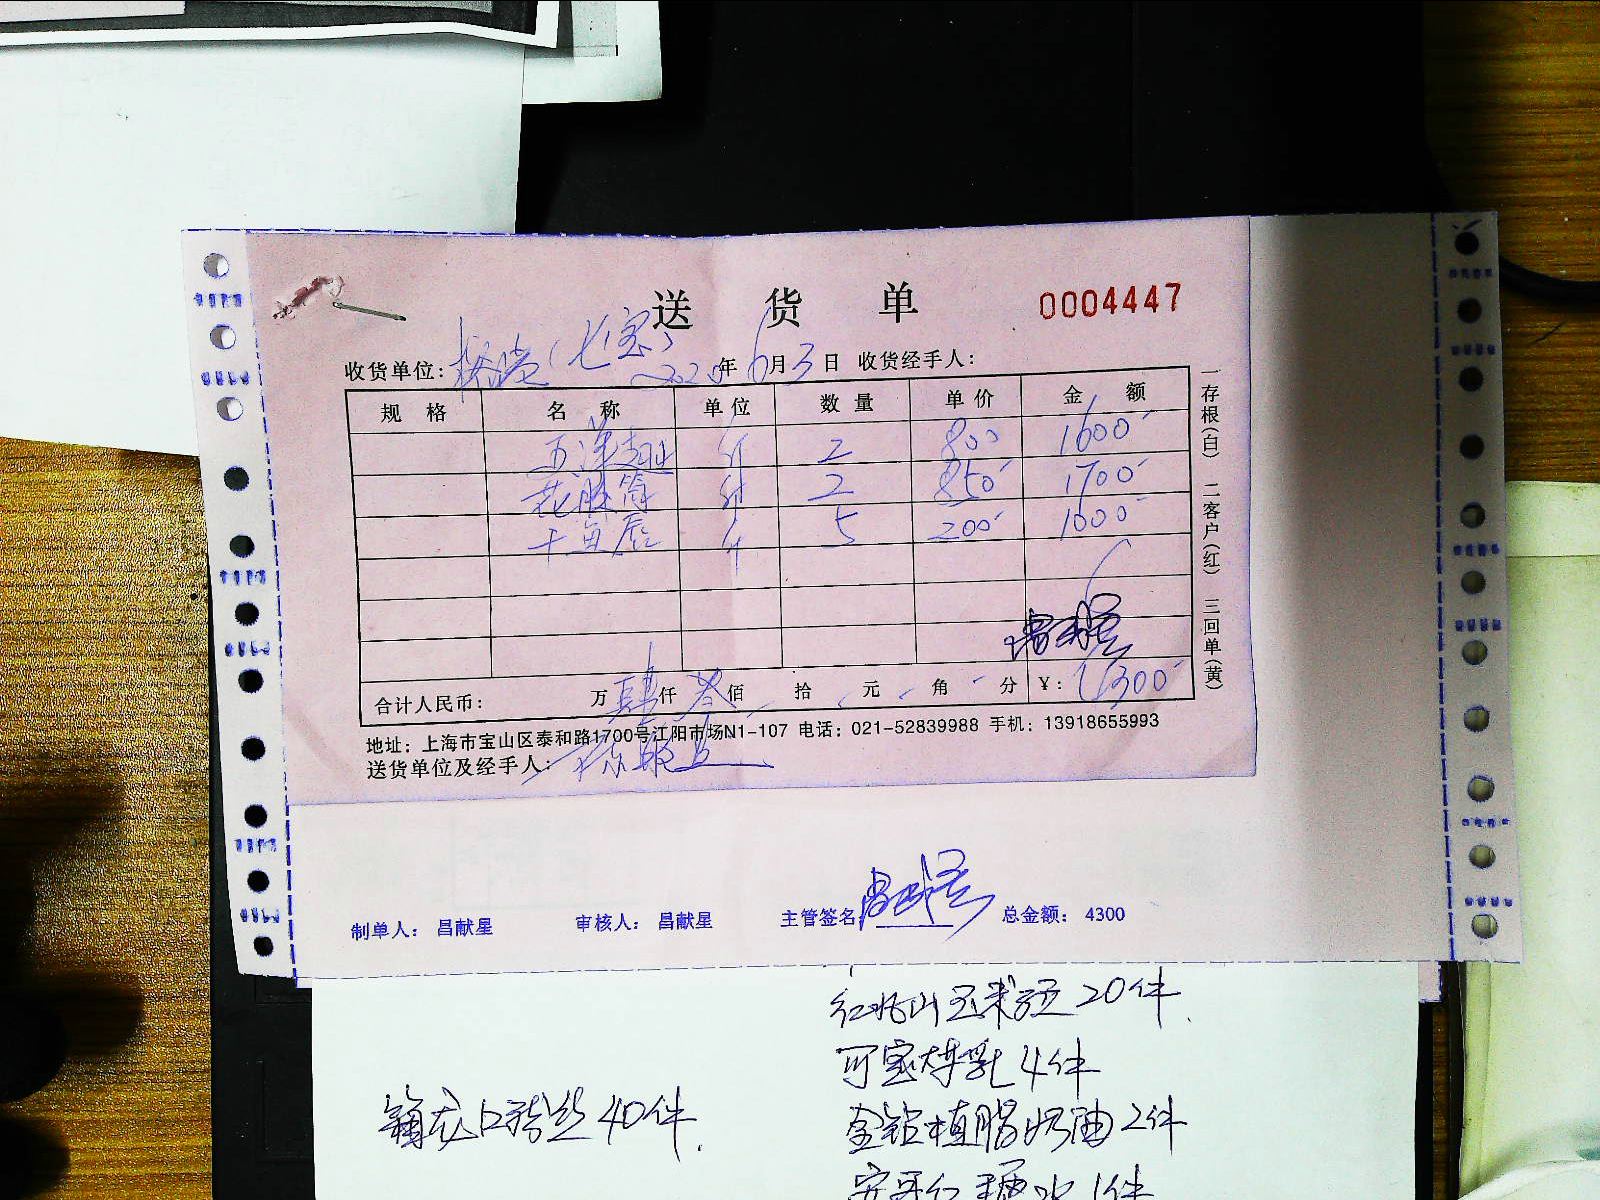 送 货 单 0004447
收货单位: (七宝) 2020年6月3日 收货经手人:
规 格 名 称 单位 数量 单价 金 额
斤 2 800 1600
花胶筒 斤 2 850 1700
斤 5 200 1000
合计人民币: 万肆仟叁佰 拾 元 角 分 ¥: 4300
一存根(白) 二客户(红) 三回单(黄)
地址: 上海市宝山区泰和路1700号江阳市场N1-107 电话: 021-52839988 手机: 13918655993
送货单位及经手人:
制单人: 昌献星 审核人: 昌献星 主管签名 总金额: 4300
20件.
4件
龙口粉丝40件.
金钻植脂奶油2件
1件